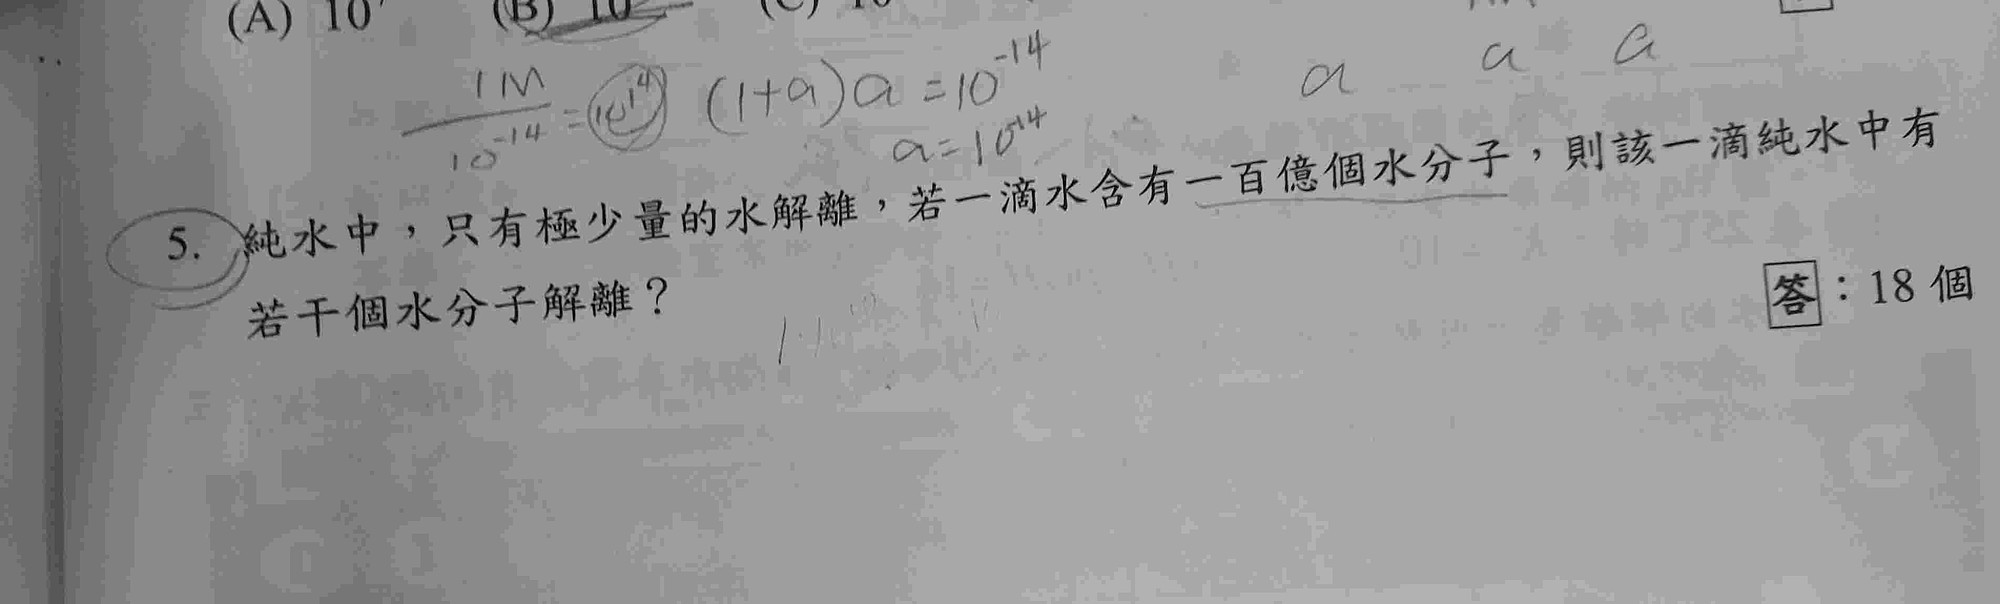 (A) 10⁷ (B) 10 (C) 10
1M/10⁻¹⁴ = 10¹⁴ (1+a)a = 10⁻¹⁴
a = 10⁻¹⁴
a a a
5. 純水中，只有極少量的水解離，若一滴水含有一百億個水分子，則該一滴純水中有
若干個水分子解離？
答：18 個